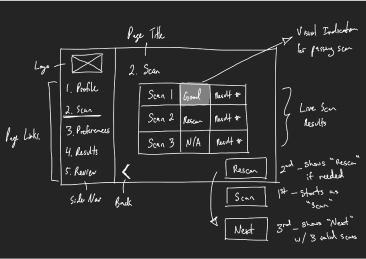 Page Title
Visual Indication
for passing scan
Logo
2. Scan
1. Profile
2. Scan
3. Preferences
4. Results
5. Review
Page Links
Scan 1 Good Result #
Scan 2 Rescan Result #
Scan 3 N/A Result #
Live Scan
Results
Side Nav
Back
Rescan
2nd - Shows "Rescan"
if needed
Scan
1st - Starts as
"Scan"
Next
3rd - Shows "Next"
w/ 3 valid scans